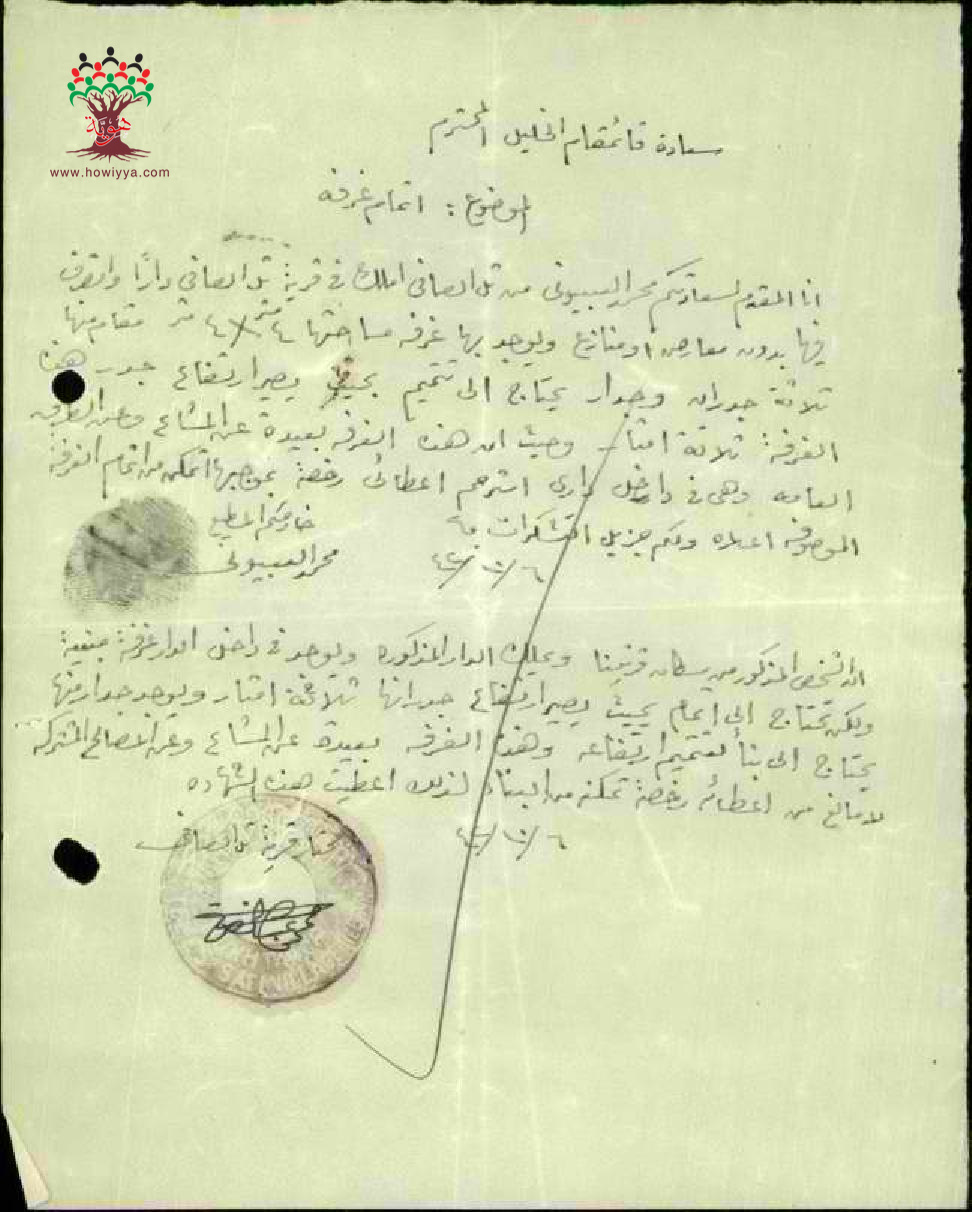 هوية
www.howiyya.com
سعادة قائمقام الخليل المحترم
الموضوع : اتمام غرفه
انا المقدم لسعادتكم محمد البسيوني من تل الصافي املك في قرية تل الصافي دارًا واتصرف
فيها بدون معارض او منازع ويوجد بها غرفه مساحتها ٤ متر × ٤ متر مقام منها
ثلاثة جدران وجدار يحتاج الى تتميم بحيث يصير ارتفاع جدر هذه
الغرفة ثلاثة امتار وحيث ان هذه الغرفه بعيدة عن المشاع وعن الطرق
العامه وهي في داخل داري استرحم اعطائي رخصة بموجبها اتمكن من اتمام الغرفة
الموصوفه اعلاه ولكم جزيل التشكرات
خادمكم المطيع
محمد البسيوني
٦/١٠/٤٢
ان الشخص المذكور من سكان قريتنا ويملك الدار المذكوره ويوجد في داخل الدار غرفة مبنية
ولكن تحتاج الى اتمام بحيث يصير ارتفاع جدرانها ثلاثة امتار ويوجد جدار منها
يحتاج الى بناء لتتميم ارتفاعه وهذه الغرفه بعيدة عن المشاع وعن المصالح المشتركه
لا مانع من اعطائه رخصة تمكنه من البناء لذلك اعطيت هذه الشهاده
٦/١٠/٤٢
مختار قرية تل الصافي